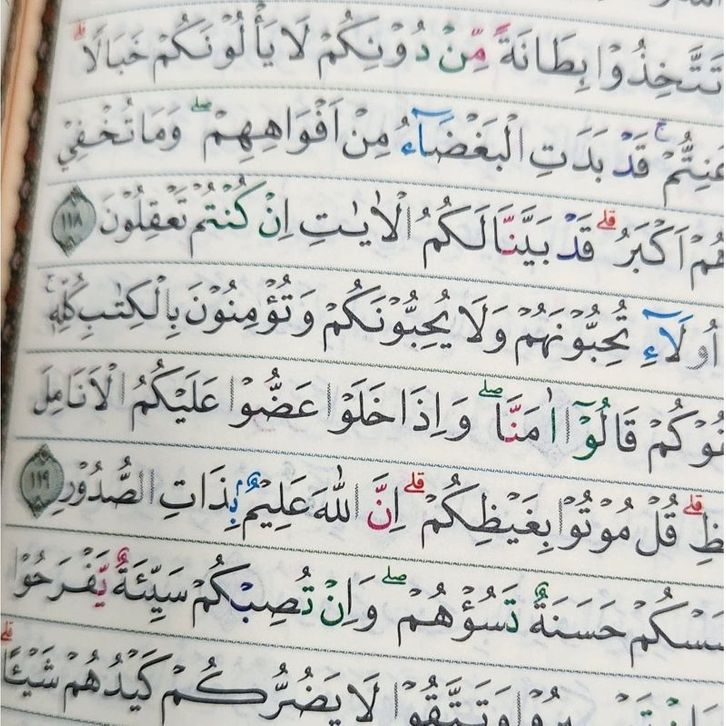 تَتَّخِذُوْا بِطَانَةً مِّنْ دُوْنِكُمْ لَا يَأْلُوْنَكُمْ خَبَالًا ؕ
عَنِتُّمْ ۚ قَدْ بَدَتِ الْبَغْضَآءُ مِنْ اَفْوَاهِهِمْ ۖ وَمَا تُخْفِيْ
هُمْ اَكْبَرُ ؕ قَدْ بَيَّنَّا لَكُمُ الْاٰيٰتِ اِنْ كُنْتُمْ تَعْقِلُوْنَ ١١٨
اُولَآءِ تُحِبُّوْنَهُمْ وَلَا يُحِبُّوْنَكُمْ وَتُؤْمِنُوْنَ بِالْكِتٰبِ كُلِّهٖ ۚ
وْكُمْ قَالُوْٓا اٰمَنَّا ۖ وَاِذَا خَلَوْا عَضُّوْا عَلَيْكُمُ الْاَنَامِلَ
ظِ ؕ قُلْ مُوْتُوْا بِغَيْظِكُمْ ؕ اِنَّ اللّٰهَ عَلِيْمٌۢ بِذَاتِ الصُّدُوْرِ ١١٩
سَسْكُمْ حَسَنَةٌ تَسُؤْهُمْ ۖ وَاِنْ تُصِبْكُمْ سَيِّئَةٌ يَّفْرَحُوْا
وَتَتَّقُوْا لَا يَضُرُّكُمْ كَيْدُهُمْ شَيْـًٔا ؕ